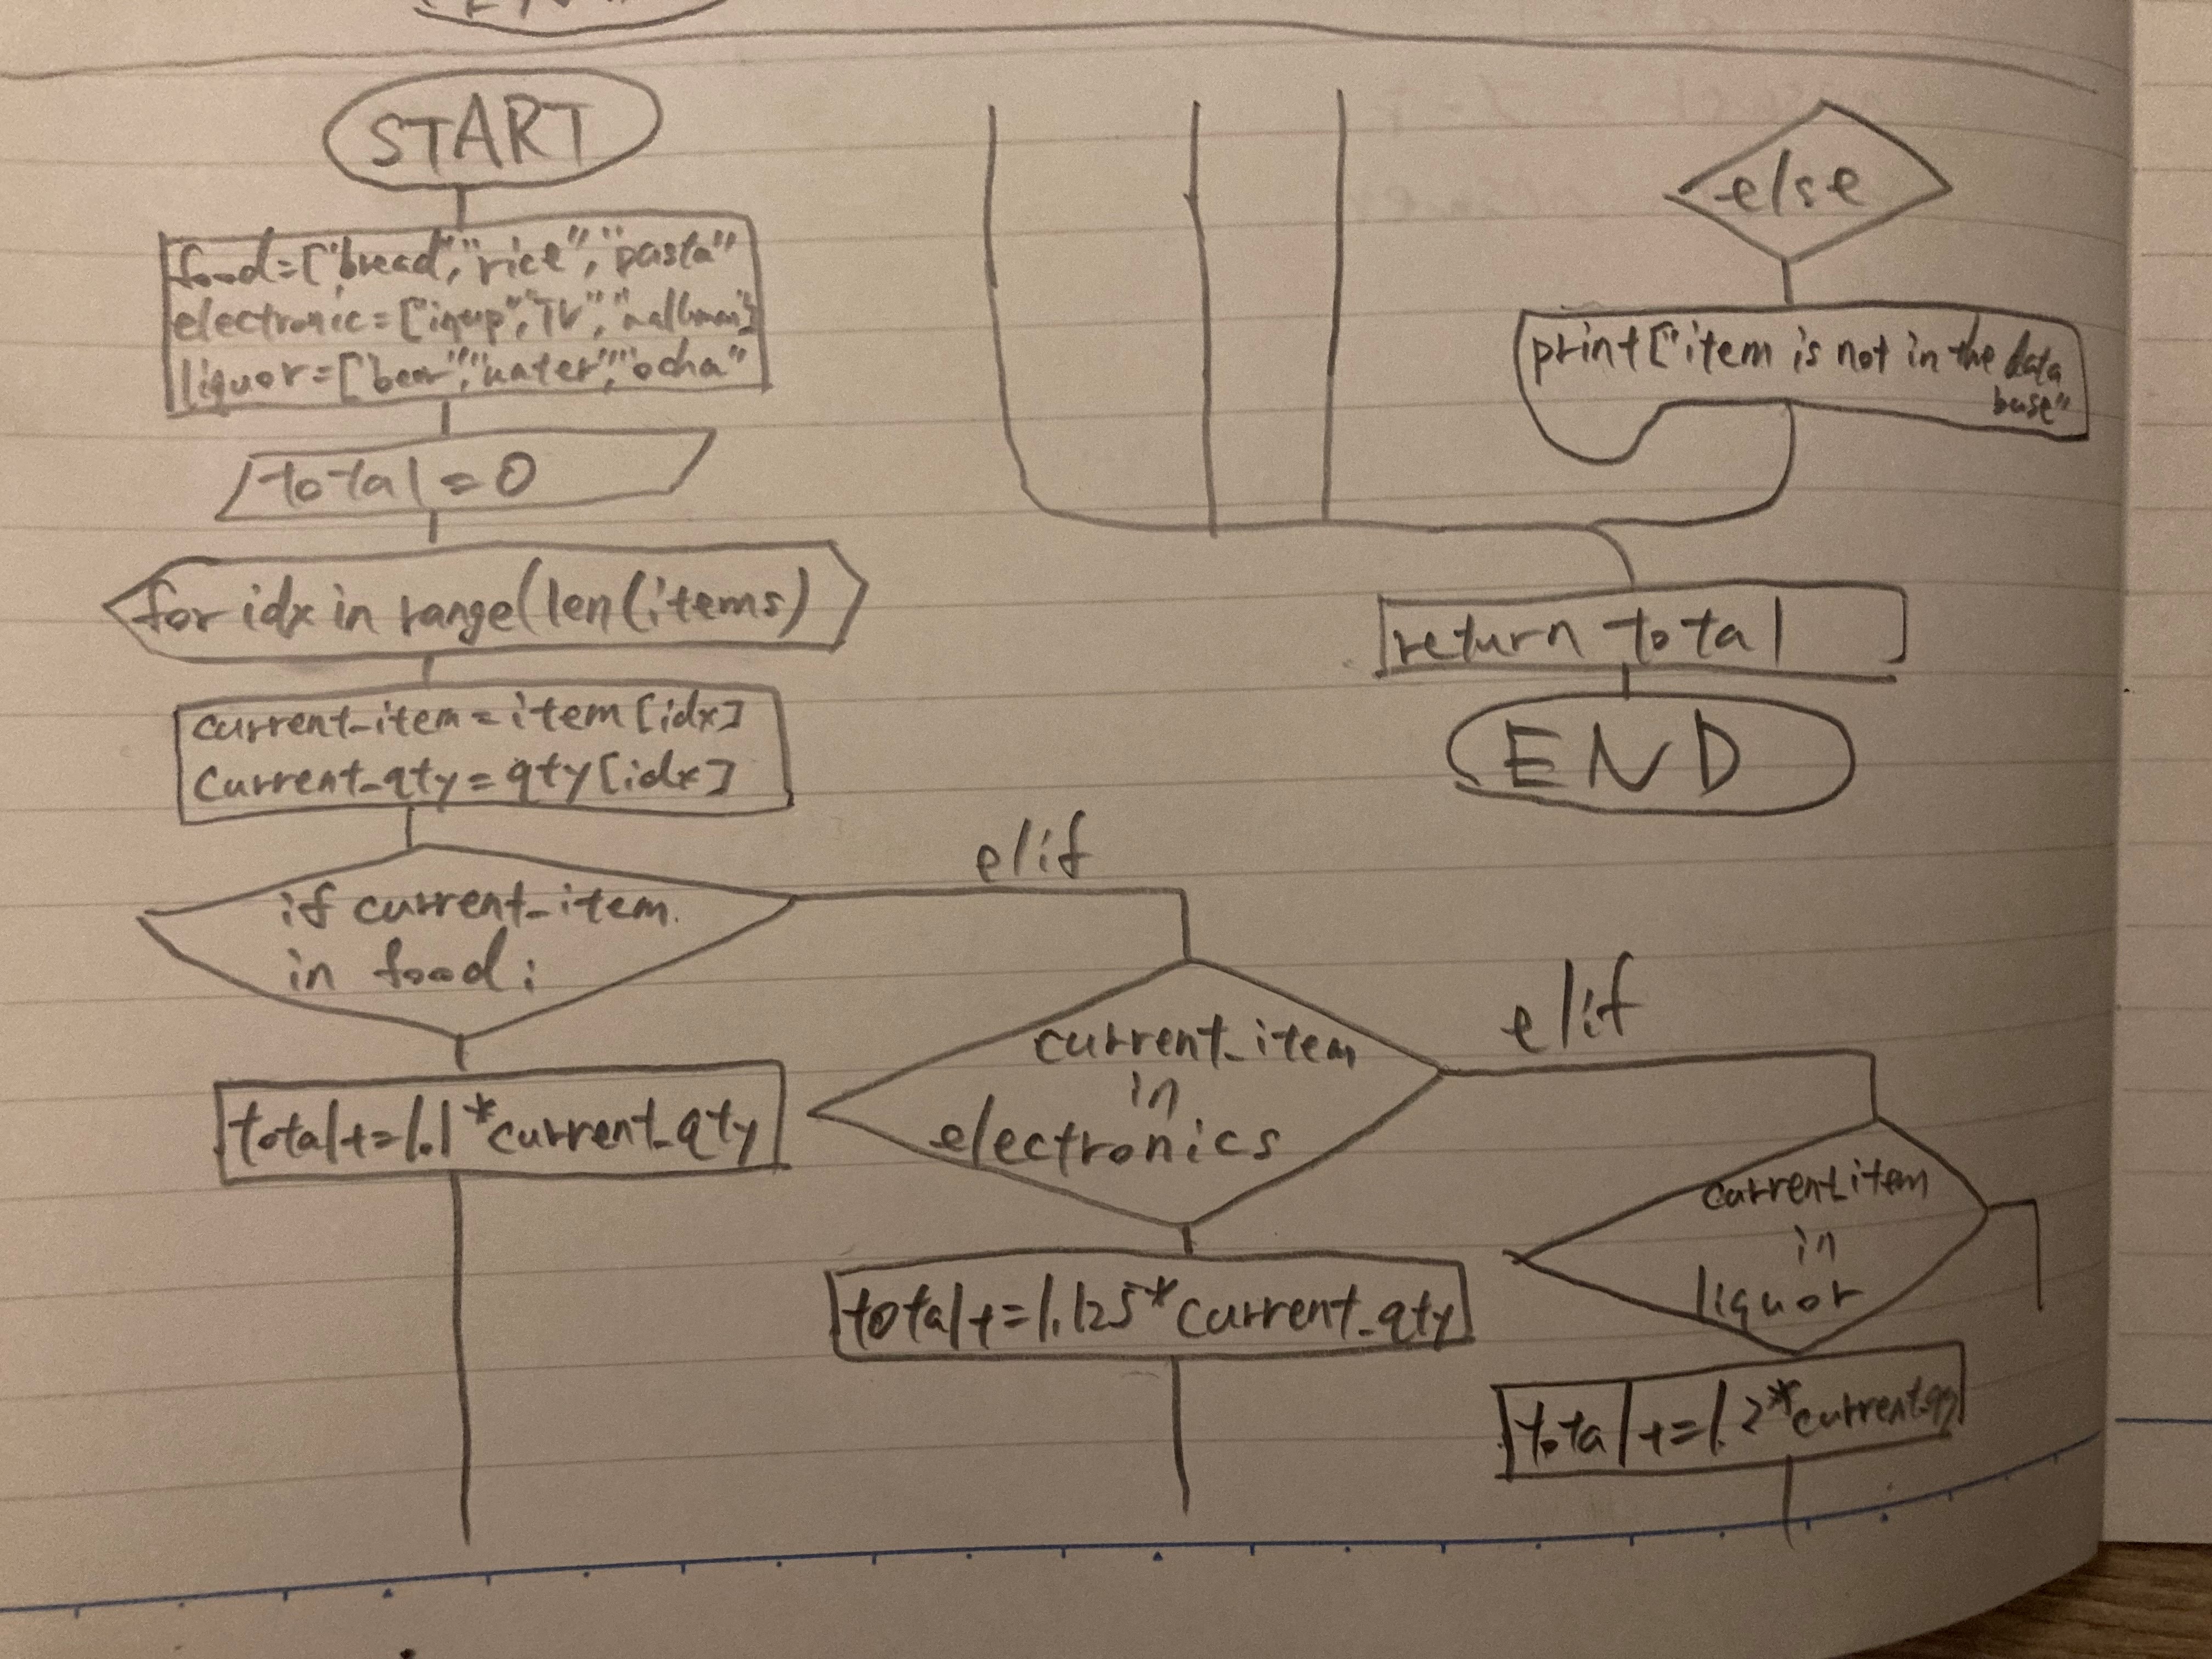 START
food=["bread","rice","pasta"
electronic=[ "TV",
liquor=["beer","water","ocha"
total=0
for idx in range(len(items)
current_item=item[idx]
current_qty=qty[idx]
if current_item
in food:
total+=1.1*current_qty
elif
current_item
in
electronics
total+=1.125*current_qty
elif
current_item
in
liquor
total+=1.2*current_qty
else
print["item is not in the data
base"
return total
END